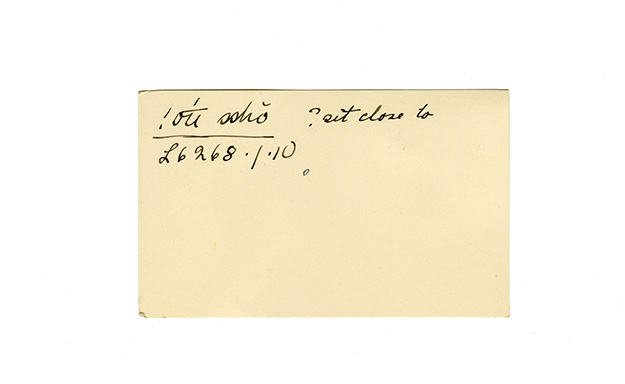 sshŏ ? sit close to
L6268·/·10